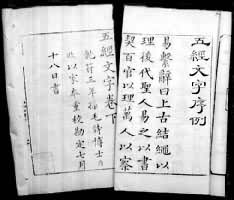 五經文字序例
易繫辭曰上古結繩以
理後代聖人易之以書
契百官以理萬人以察
五經文字卷下
乾符三年孫毛詩博士自
牧以家本重校勘定七月
十八日書